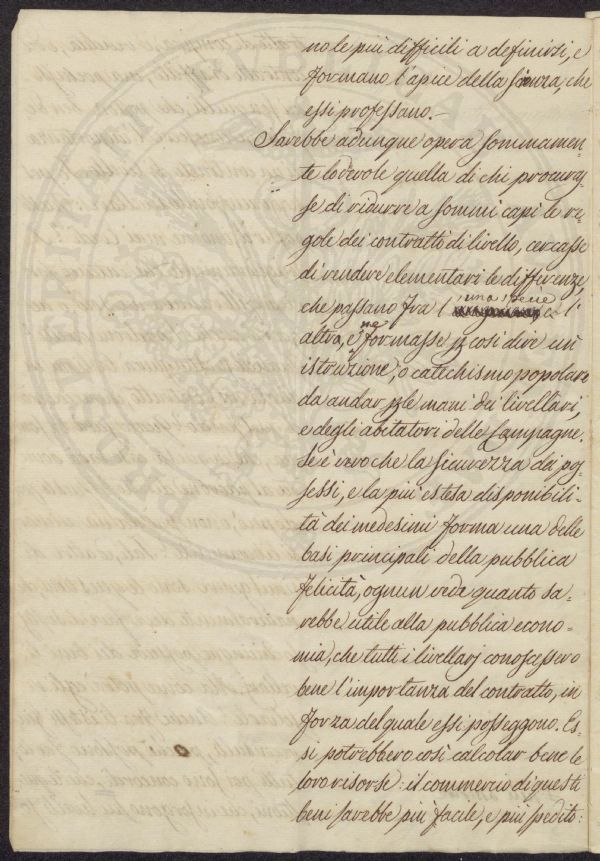 no le piu difficili a definirsi, e
formano l'apice della scienza, che
essi professano.-
Sarebbe adunque opera sommamen-
te lodevole quella di chi procuras-
se di ridurre a sommi capi le re-
gole dei contratti di livello, cercasse
di rendere elementari le differenze,
che passano fra l'una specie e l'
altra, e ne formasse p così dire un'
istruzione, o catechismo popolare
da andar p le mani dei livellarj,
e degli abitatori delle Campagne.
Se è vero che la sicurezza dei pos-
sessi, e la più estesa disponibili-
tà dei medesimi forma una delle
basi principali della pubblica
felicità, ognun veda quanto sa-
rebbe utile alla pubblica econo-
mia, che tutti i livellarj conoscessero
bene l'importanza del contratto, in
forza del quale essi posseggono. Es-
si potrebbero così calcolar bene le
loro risorse: il commercio di questi
beni sarebbe più facile, e più spedito: